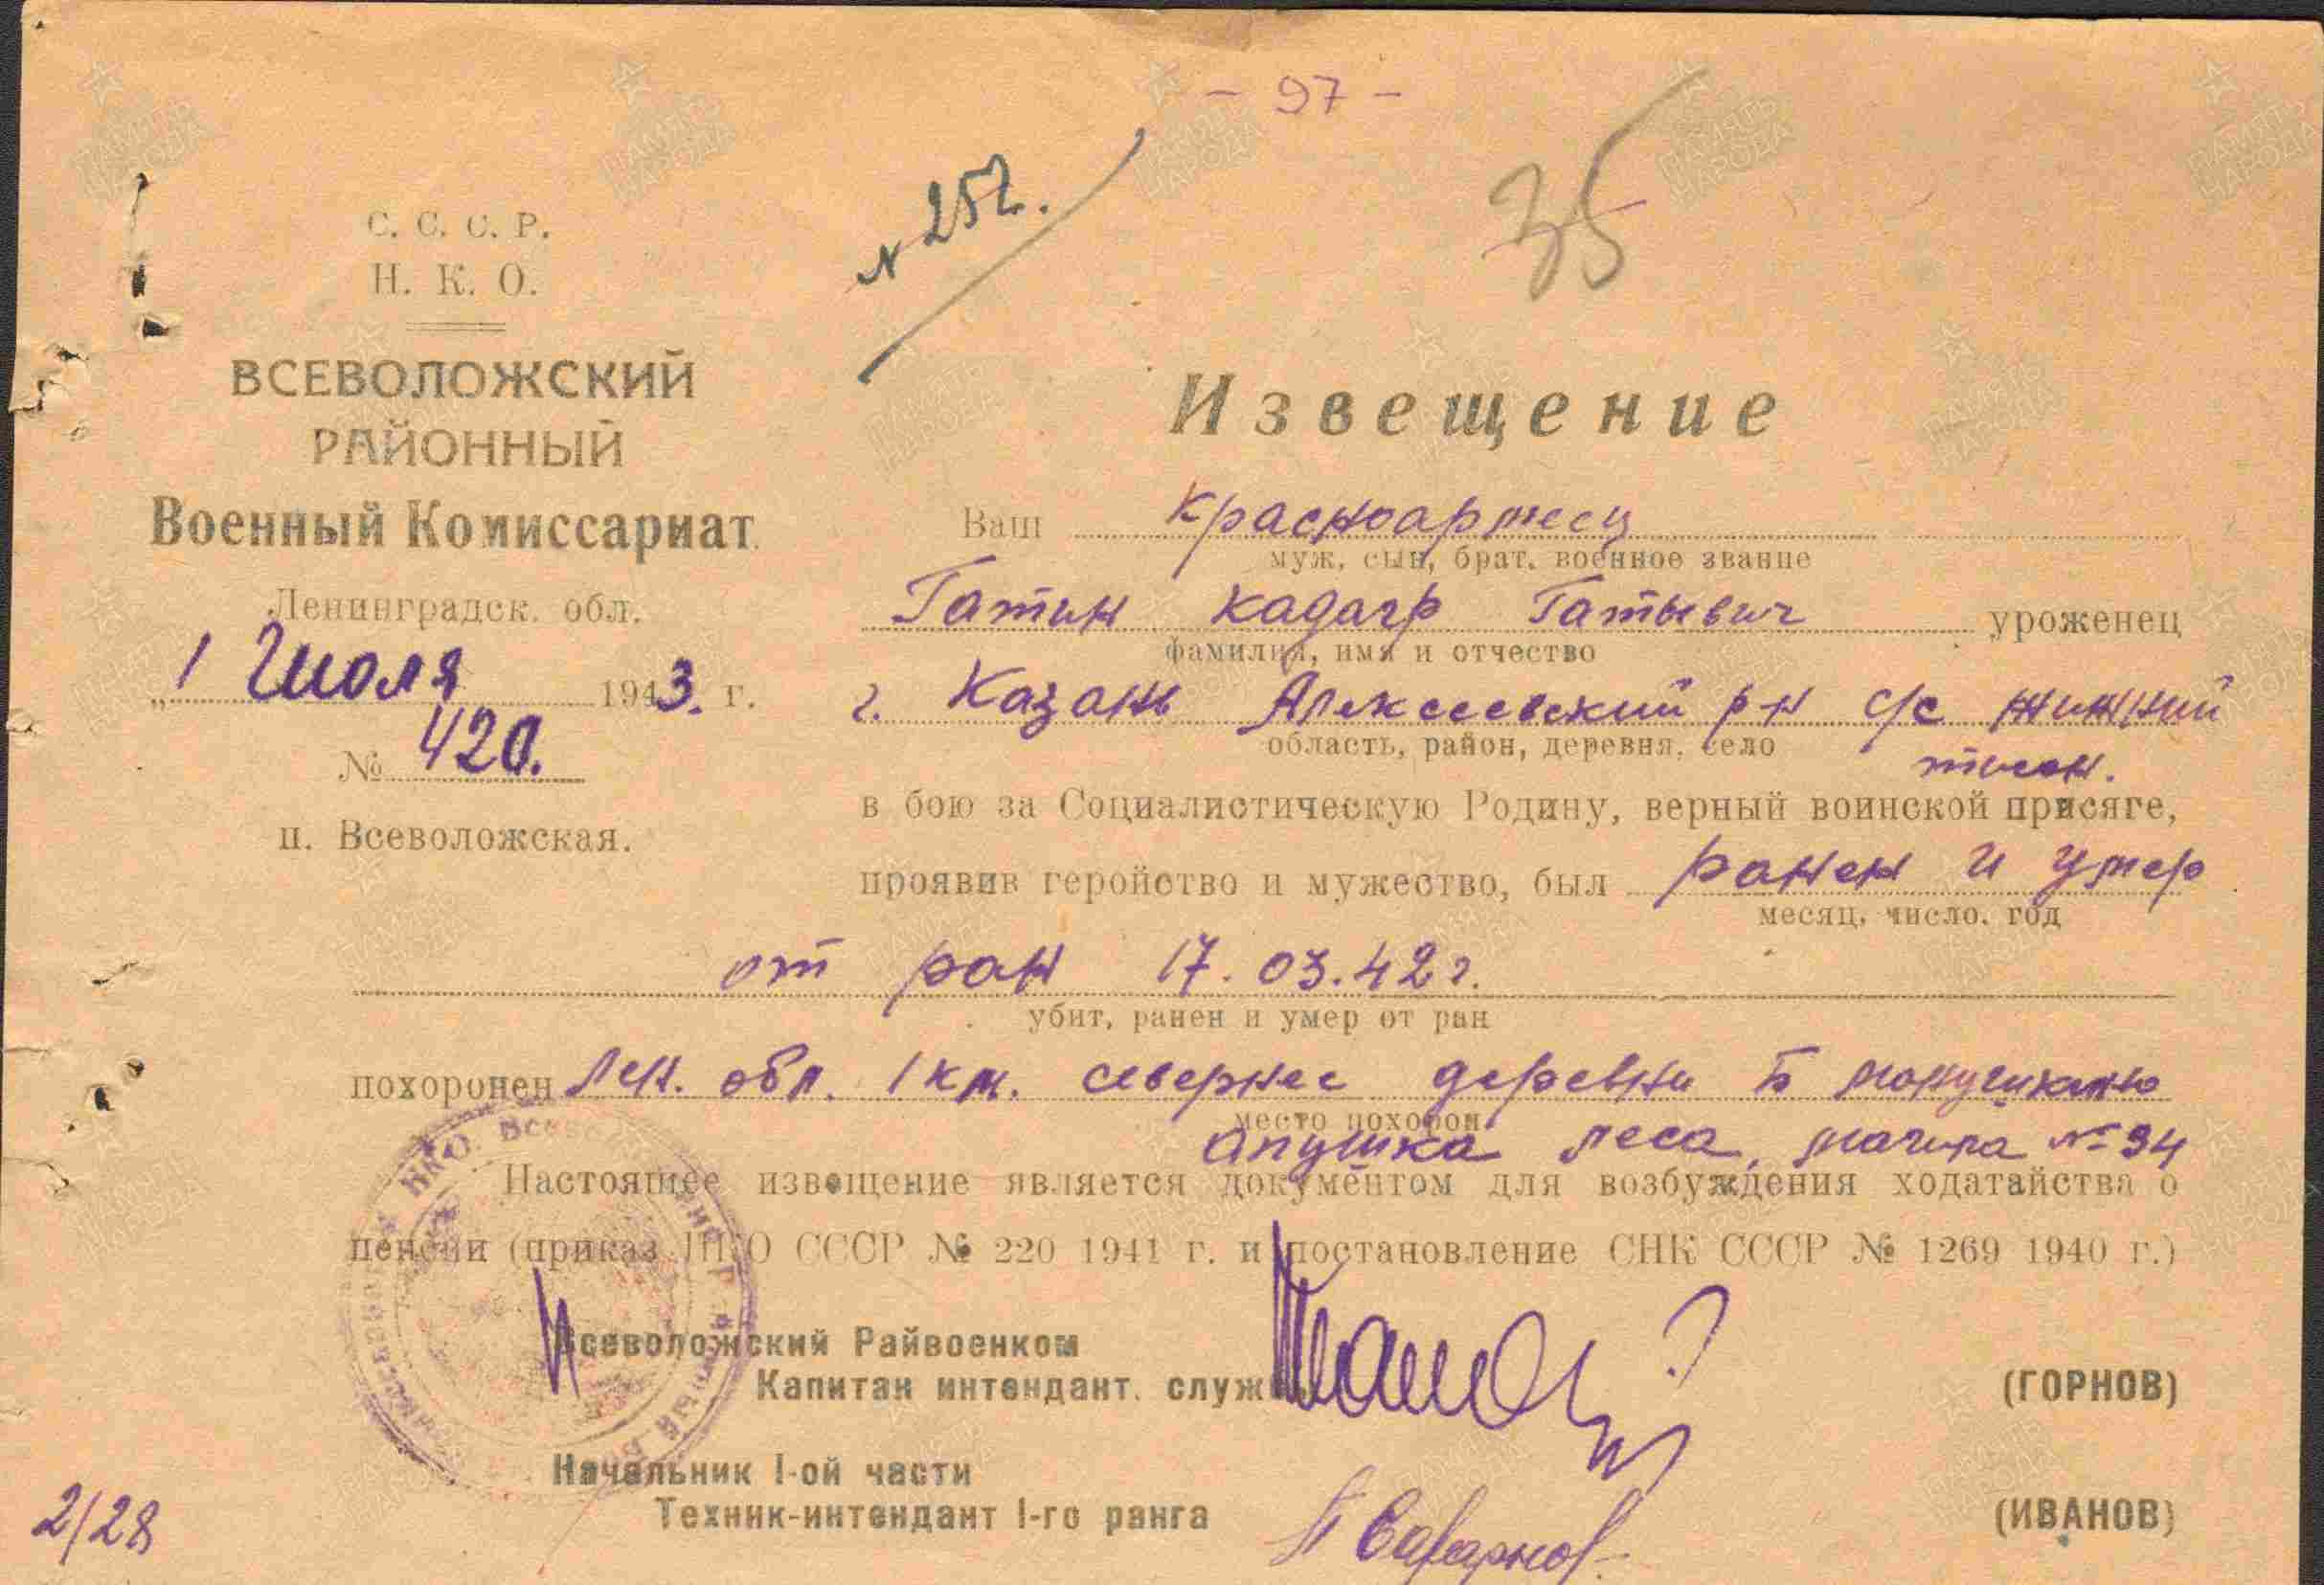 - 97 -
№ 252.
35
С. С. С. Р.
Н. К. О.
ВСЕВОЛОЖСКИЙ
РАЙОННЫЙ
Военный Комиссариат
Ленинградск. обл.
„ 1 Июля 1943. г.
№ 420.
п. Всеволожская.
Извещение
Ваш красноармеец
муж, сын, брат, военное звание
Гатин Кадагр Гатыевич уроженец
фамилия, имя и отчество
г. Казань Алексеевский р-н с/с
область, район, деревня, село
в бою за Социалистическую Родину, верный воинской присяге,
проявив геройство и мужество, был ранен и умер
месяц, число, год
от ран 17.03.42 г.
убит, ранен и умер от ран
похоронен Лен. обл. 1 км. севернее деревни Б
место похорон
опушка леса, могила № 94
Настоящее извещение является документом для возбуждения ходатайства о
пенсии (приказ НКО СССР № 220 1941 г. и постановление СНК СССР № 1269 1940 г.)
Всеволожский Райвоенком
Капитан интендант. службы
(ГОРНОВ)
Начальник I-ой части
Техник-интендант I-го ранга
(ИВАНОВ)
2/28
ПАМЯТЬ НАРОДА